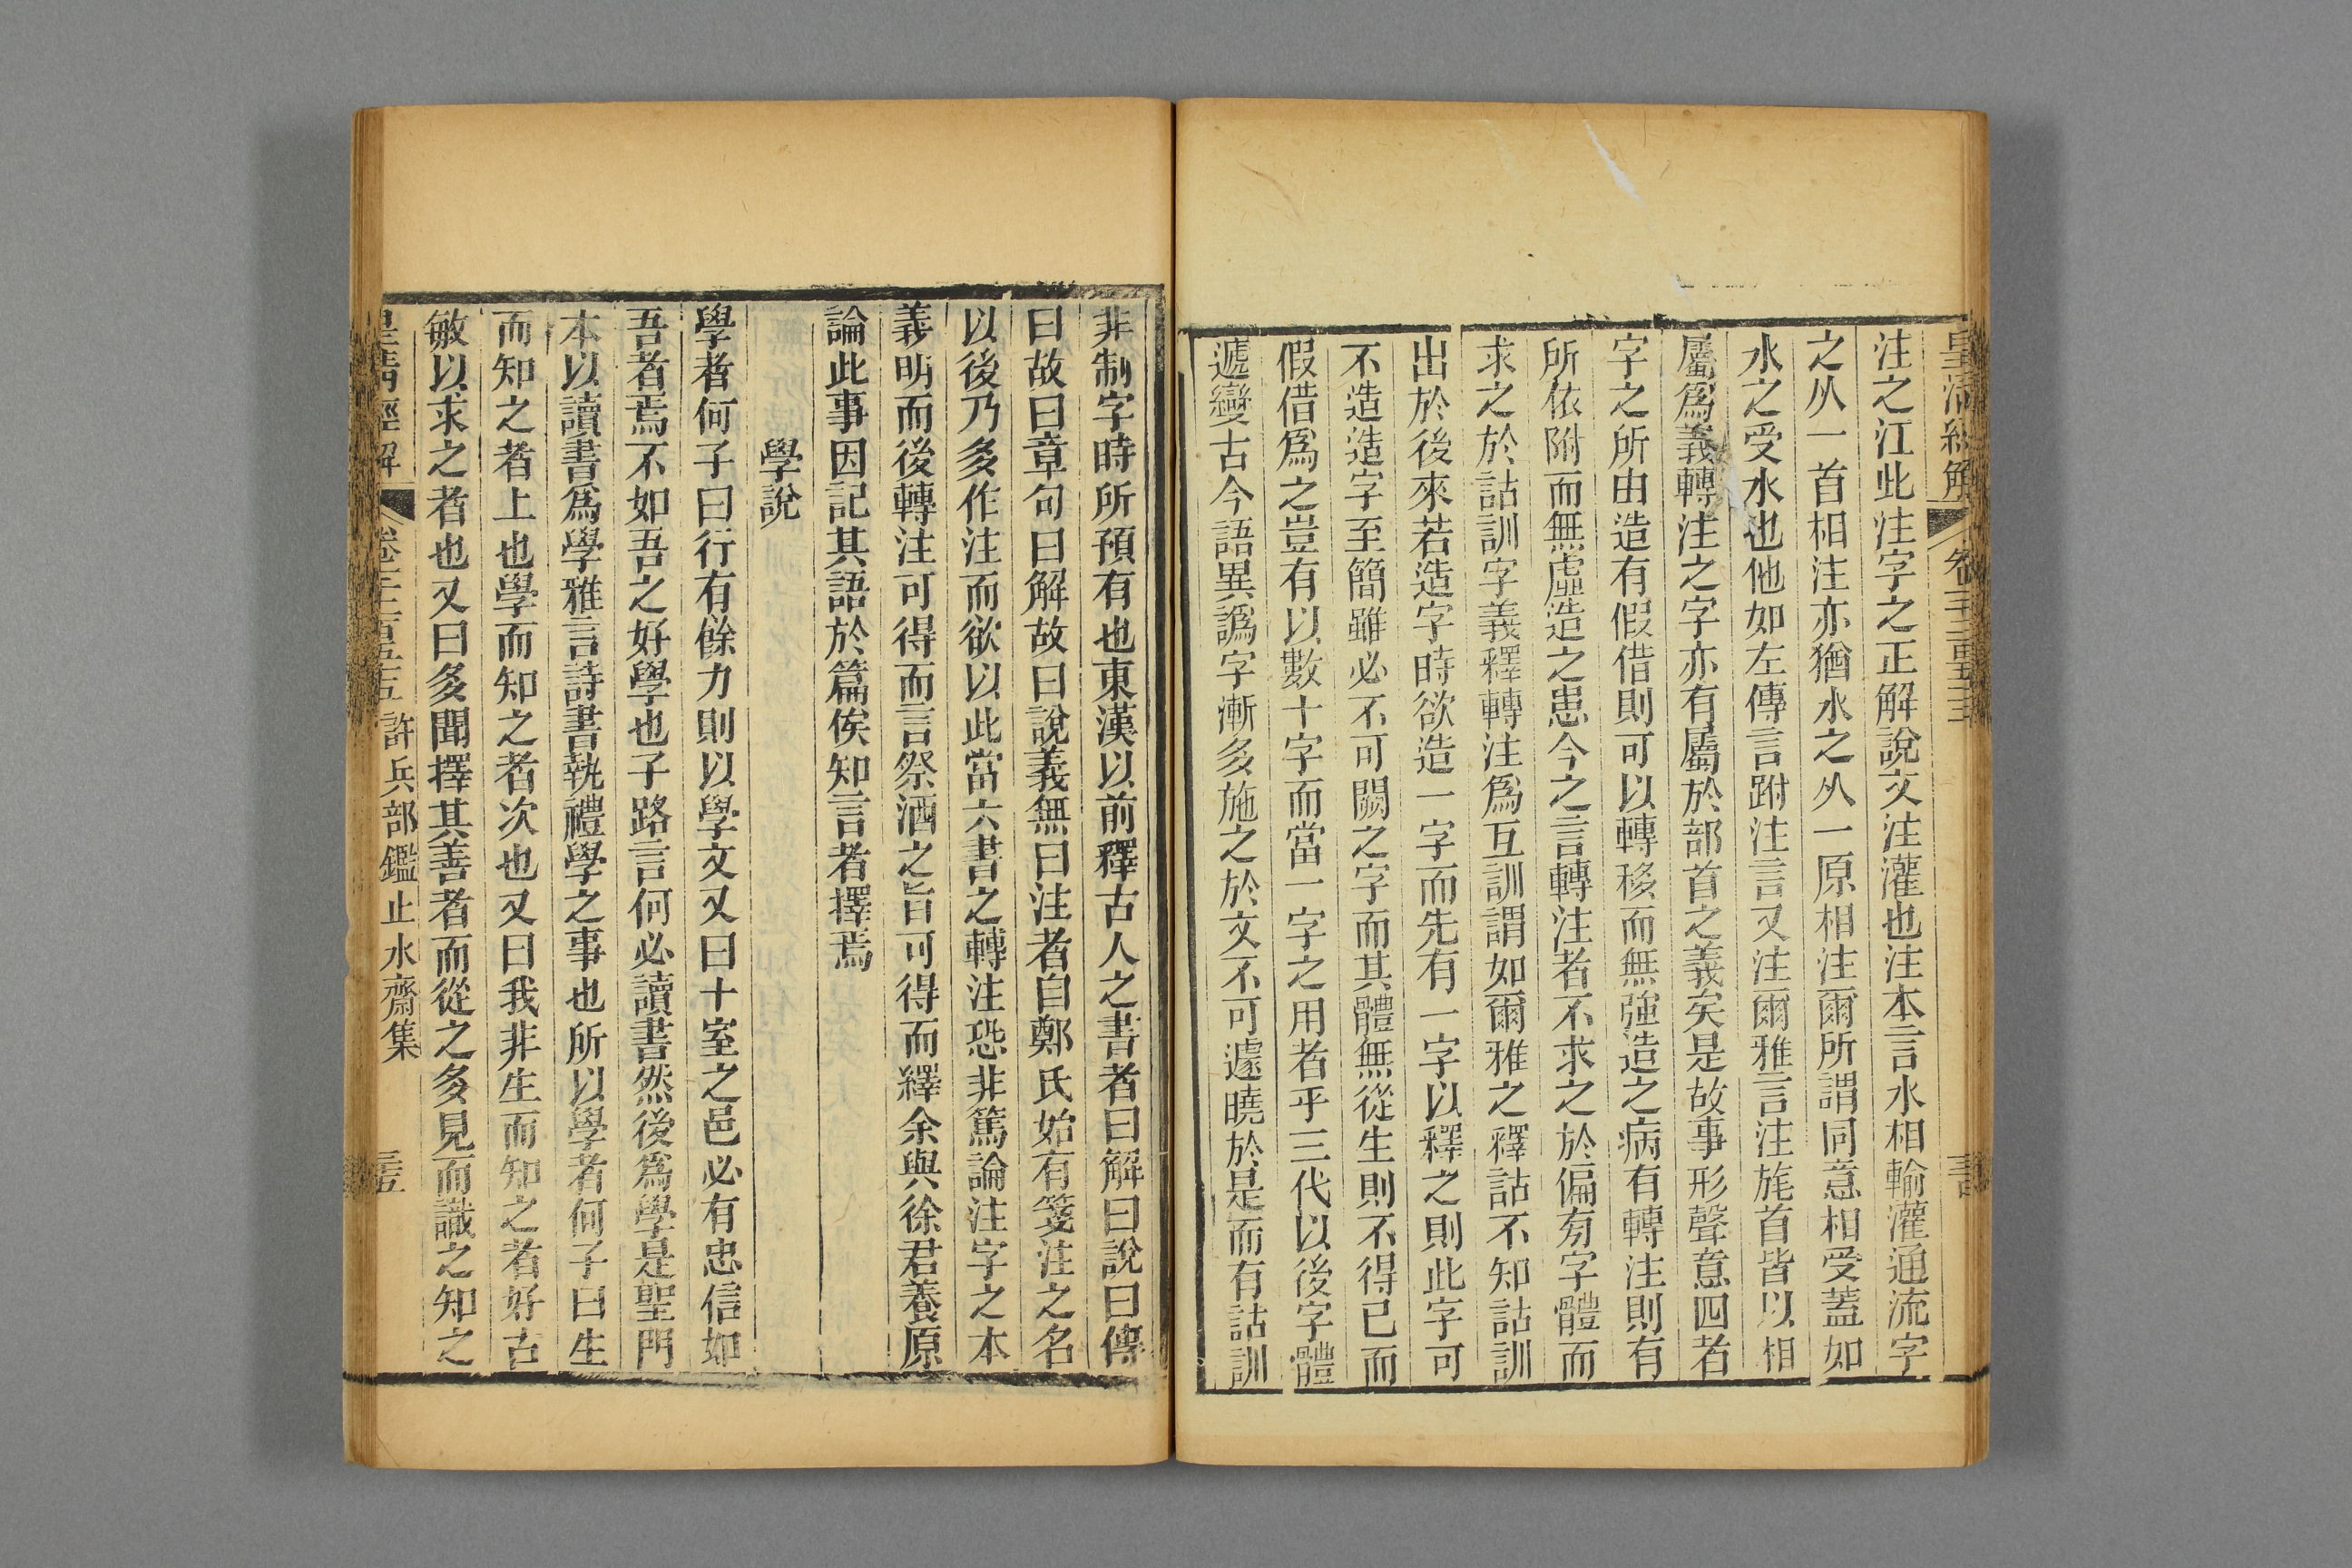 皇清經解
注之江此注字之正解說文注灌也注本言水相輸灌通流字
之从一首相注亦猶水之从一原相注爾所謂同意相受蓋如
水之受水也他如左傳言跗注言又注爾雅言注旄首皆以相
屬爲義轉注之字亦有屬於部首之義矣是故事形聲意四者
字之所由造有假借則可以轉移而無強造之病有轉注則有
所依附而無虛造之患今之言轉注者不求之於偏旁字體而
求之於詁訓字義釋轉注爲互訓謂如爾雅之釋詁不知詁訓
出於後來若造字時欲造一字而先有一字以釋之則此字可
不造造字至簡雖必不可闕之字而其體無從生則不得已而
假借爲之豈有以數十字而當一字之用者乎三代以後字體
遞變古今語異譌字漸多施之於文不可遽曉於是而有詁訓
非制字時所預有也東漢以前釋古人之書者曰解曰說曰傳
曰故曰章句曰解故曰說義無曰注者自鄭氏始有箋注之名
以後乃多作注而欲以此當六書之轉注恐非篤論注字之本
義明而後轉注可得而言祭酒之旨可得而繹余與徐君養原
論此事因記其語於篇俟知言者擇焉
學說
學者何子曰行有餘力則以學文又曰十室之邑必有忠信如
吾者焉不如吾之好學也子路言何必讀書然後爲學是聖門
本以讀書爲學雅言詩書執禮學之事也所以學者何子曰生
而知之者上也學而知之者次也又曰我非生而知之者好古
敏以求之者也又曰多聞擇其善者而從之多見而識之知之
皇清經解
許兵部鑑止水齋集